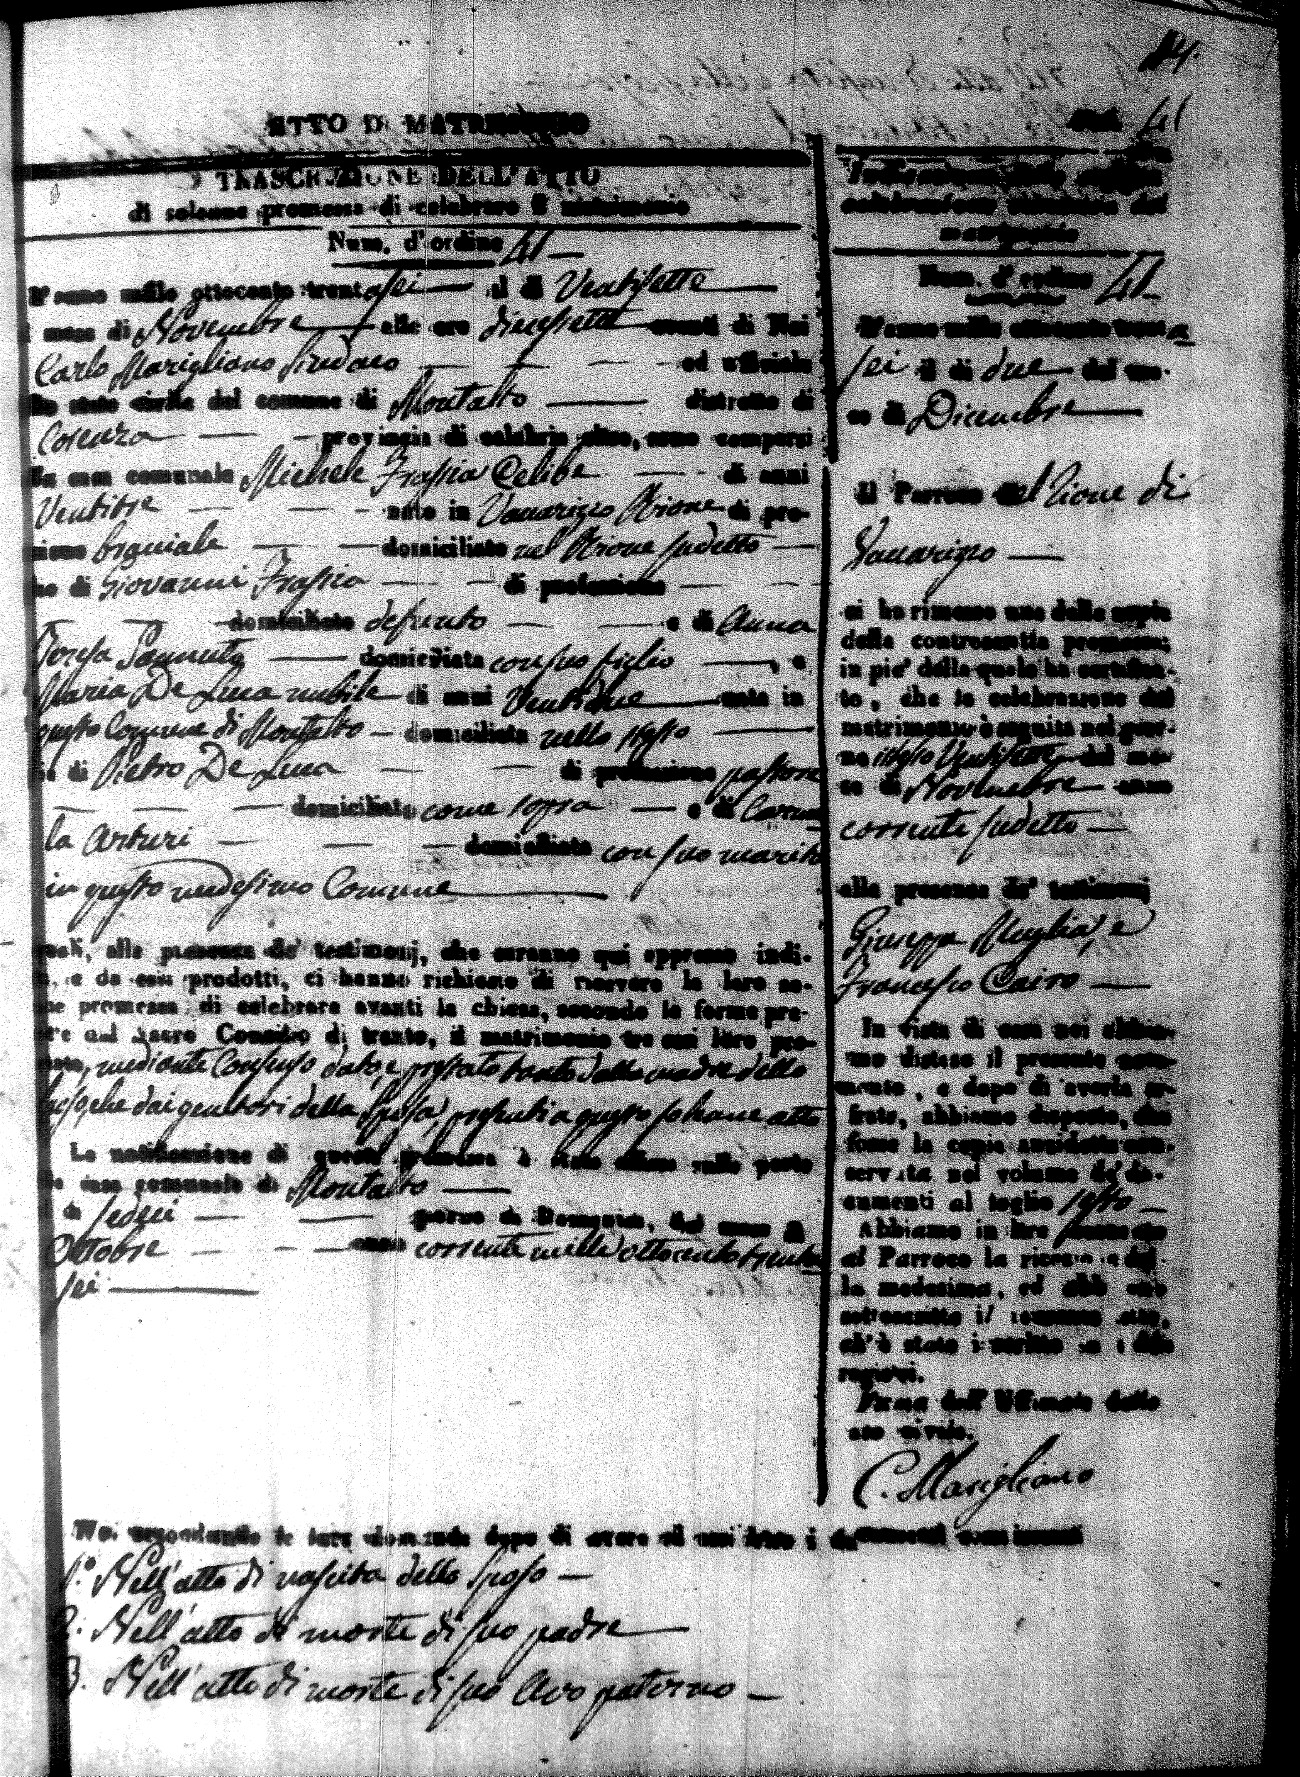 84.
ATTO DI MATRIMONIO
TRASCRIZIONE DELL'ATTO
di solenne promessa di celebrare il matrimonio
Num. d'ordine 41
L'anno mille ottocento trentasei il di Ventisette
mese di Novembre alle ore diecisette avanti di Noi
Carlo Marigliano Sindaco ed uffiziale
lo stato civile del comune di Montalto distretto di
Cosenza provincia di calabria citra, sono comparsi
la casa comunale Michele Frassia Celibe di anni
Ventitre nato in Vaccarizzo Rione di pro-
sione bracciale domiciliato nel Rione sudetto
lio di Giovanni Frassia di professione
domiciliato defunto e di Anna
Teresa Sannuto domiciliata con suo figlio , e
Maria De Luca nubile di anni Ventidue nata in
questo Comune di Montalto domiciliata nello stesso
lia di Pietro De Luca di professione pastore
domiciliato come sopra e di Carme
la Arturi domiciliata con suo marito
in questo medesimo Comune
quali, alla presenza de' testimonj, che saranno qui appresso indi-
, e da essi prodotti, ci hanno richiesto di ricevere la loro so-
ne promessa di celebrare avanti la chiesa, secondo le forme pre-
tte dal sacro Concilio di trento, il matrimonio tra essi loro pro-
mediante Consenso dato, e prestato tanto dalla madre dello
sposo, che dai genitori della Sposa, presenti a questo solenne atto
La notificazione di questa promessa è stata affissa sulla porta
la casa comunale di Montalto
di sedici giorno di Domenica, del mese di
Ottobre anno corrente mille ottocento trenta
sei
Noi secondando la loro domanda dopo di avere ad essi letto i documenti consistenti
1.° Nell'atto di nascita dello Sposo
2. Nell'atto di morte di suo padre
3. Nell'atto di morte di suo Avo paterno
41
celebrazione del
matrimonio
Num. d'ordine 41
L'anno mille ottocento trenta
sei il di due del me-
se di Dicembre
Il Parroco del Rione di
Vaccarizzo
ci ha rimesso una delle copie
della controscritta promessa;
in piè della quale ha certifica-
to, che la celebrazione del
matrimonio è seguita nel gior-
no istesso Ventisette del me-
se di Novembre anno
corrente sudetto
alla presenza de' testimonj
Giuseppe Muglia, e
Francesco Cairo
In vista di essa noi abbia-
mo disteso il presente nota-
mento, e dopo di averla ci-
frata, abbiamo disposto, che
fosse la copia anzidetta con-
servata nel volume de' do-
cumenti al foglio istesso
Abbiamo in oltre
al Parroco la ricevuta del-
la medesima, ed abbiamo
sottoscritto il presente atto,
ch'è stato inscritto su i due
registri.
Firma dell'Uffiziale dello
stato civile.
C. Marigliano